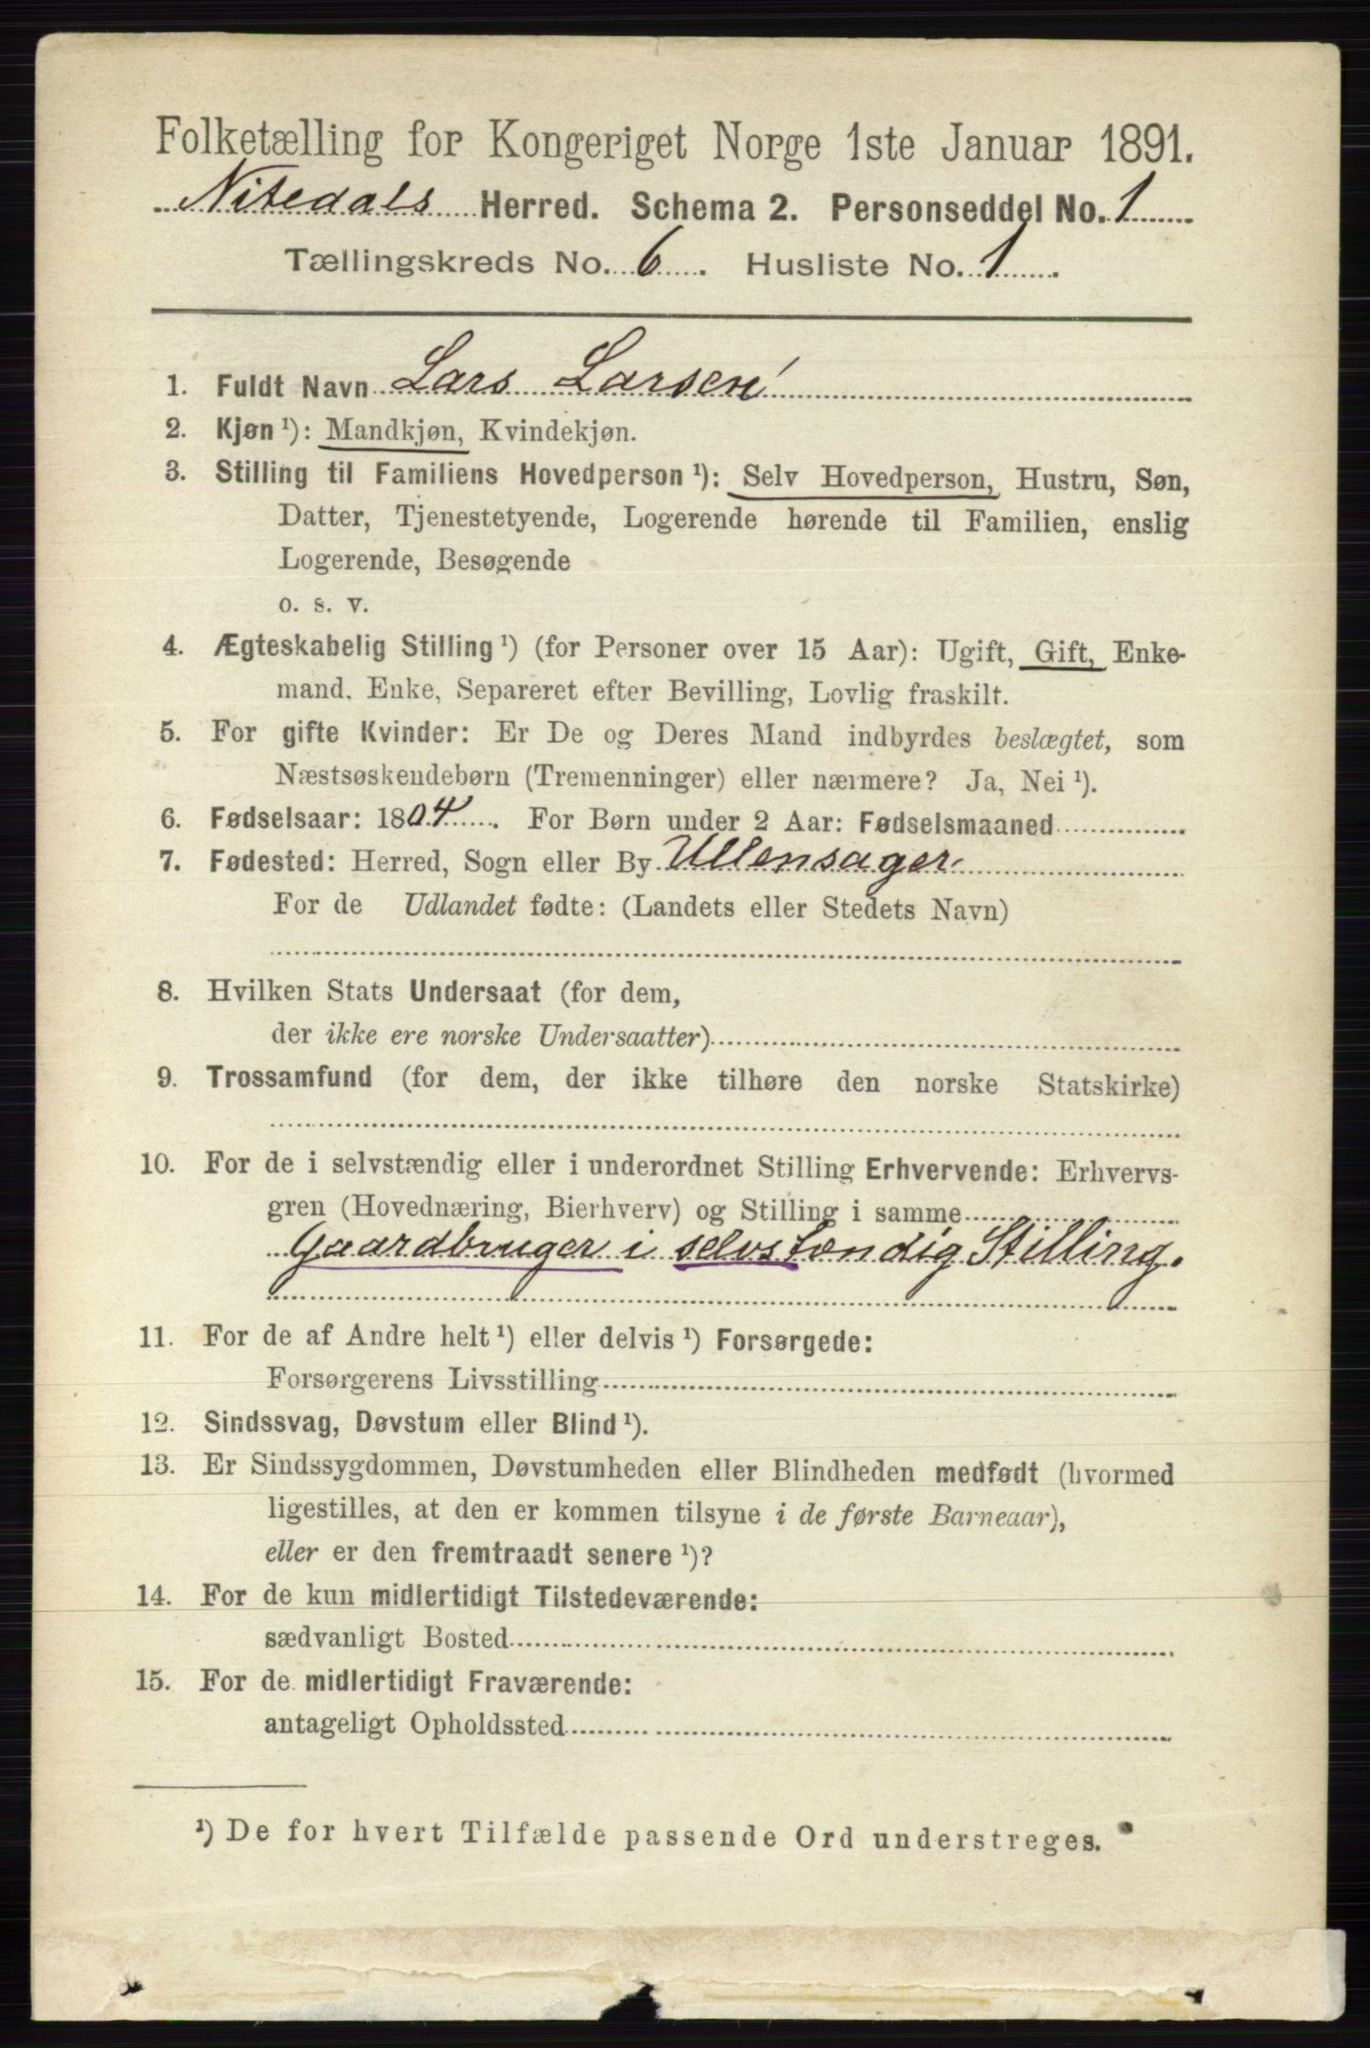 Folketælling for Kongeriget Norge 1ste Januar 1891.
Nitedals Herred. Schema 2. Personseddel No. 1
Tællingskreds No. 6. Husliste No. 1.
1. Fuldt Navn Lars Larsen
2. Kjøn ¹): Mandkjøn, Kvindekjøn.
3. Stilling til Familiens Hovedperson ¹): Selv Hovedperson, Hustru, Søn,
Datter, Tjenestetyende, Logerende hørende til Familien, enslig
Logerende, Besøgende
o. s. v.
4. Ægteskabelig Stilling ¹) (for Personer over 15 Aar): Ugift, Gift, Enke-
mand, Enke, Separeret efter Bevilling, Lovlig fraskilt.
5. For gifte Kvinder: Er De og Deres Mand indbyrdes beslægtet, som
Næstsøskendebørn (Tremenninger) eller nærmere? Ja, Nei ¹).
6. Fødselsaar: 1804. For Børn under 2 Aar: Fødselsmaaned
7. Fødested: Herred, Sogn eller By Ullensager
For de Udlandet fødte: (Landets eller Stedets Navn)
8. Hvilken Stats Undersaat (for dem,
der ikke ere norske Undersaatter)
9. Trossamfund (for dem, der ikke tilhøre den norske Statskirke)
10. For de i selvstændig eller i underordnet Stilling Erhvervende: Erhvervs-
gren (Hovednæring, Bierhverv) og Stilling i samme
Gaardbruger i selvstændig Stilling.
11. For de af Andre helt ¹) eller delvis ¹) Forsørgede:
Forsørgerens Livsstilling
12. Sindssvag, Døvstum eller Blind ¹).
13. Er Sindssygdommen, Døvstumheden eller Blindheden medfødt (hvormed
ligestilles, at den er kommen tilsyne i de første Barneaar),
eller er den fremtraadt senere ¹)?
14. For de kun midlertidigt Tilstedeværende:
sædvanligt Bosted
15. For de midlertidigt Fraværende:
antageligt Opholdssted
¹) De for hvert Tilfælde passende Ord understreges.